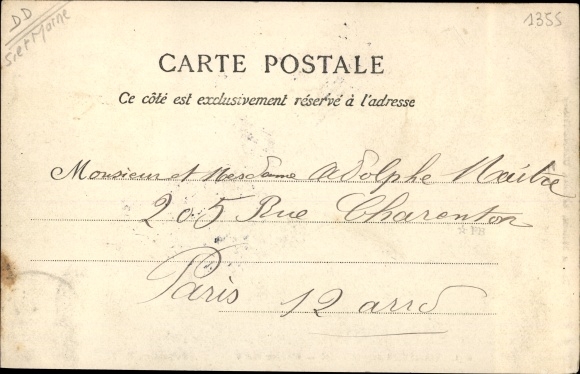 DD
S. et Marne
1355
CARTE POSTALE
Ce côté est exclusivement réservé à l'adresse
Monsieur et Mesdame Adolphe Maître
205 Rue Charenton
☆ FB
Paris 12 arrd